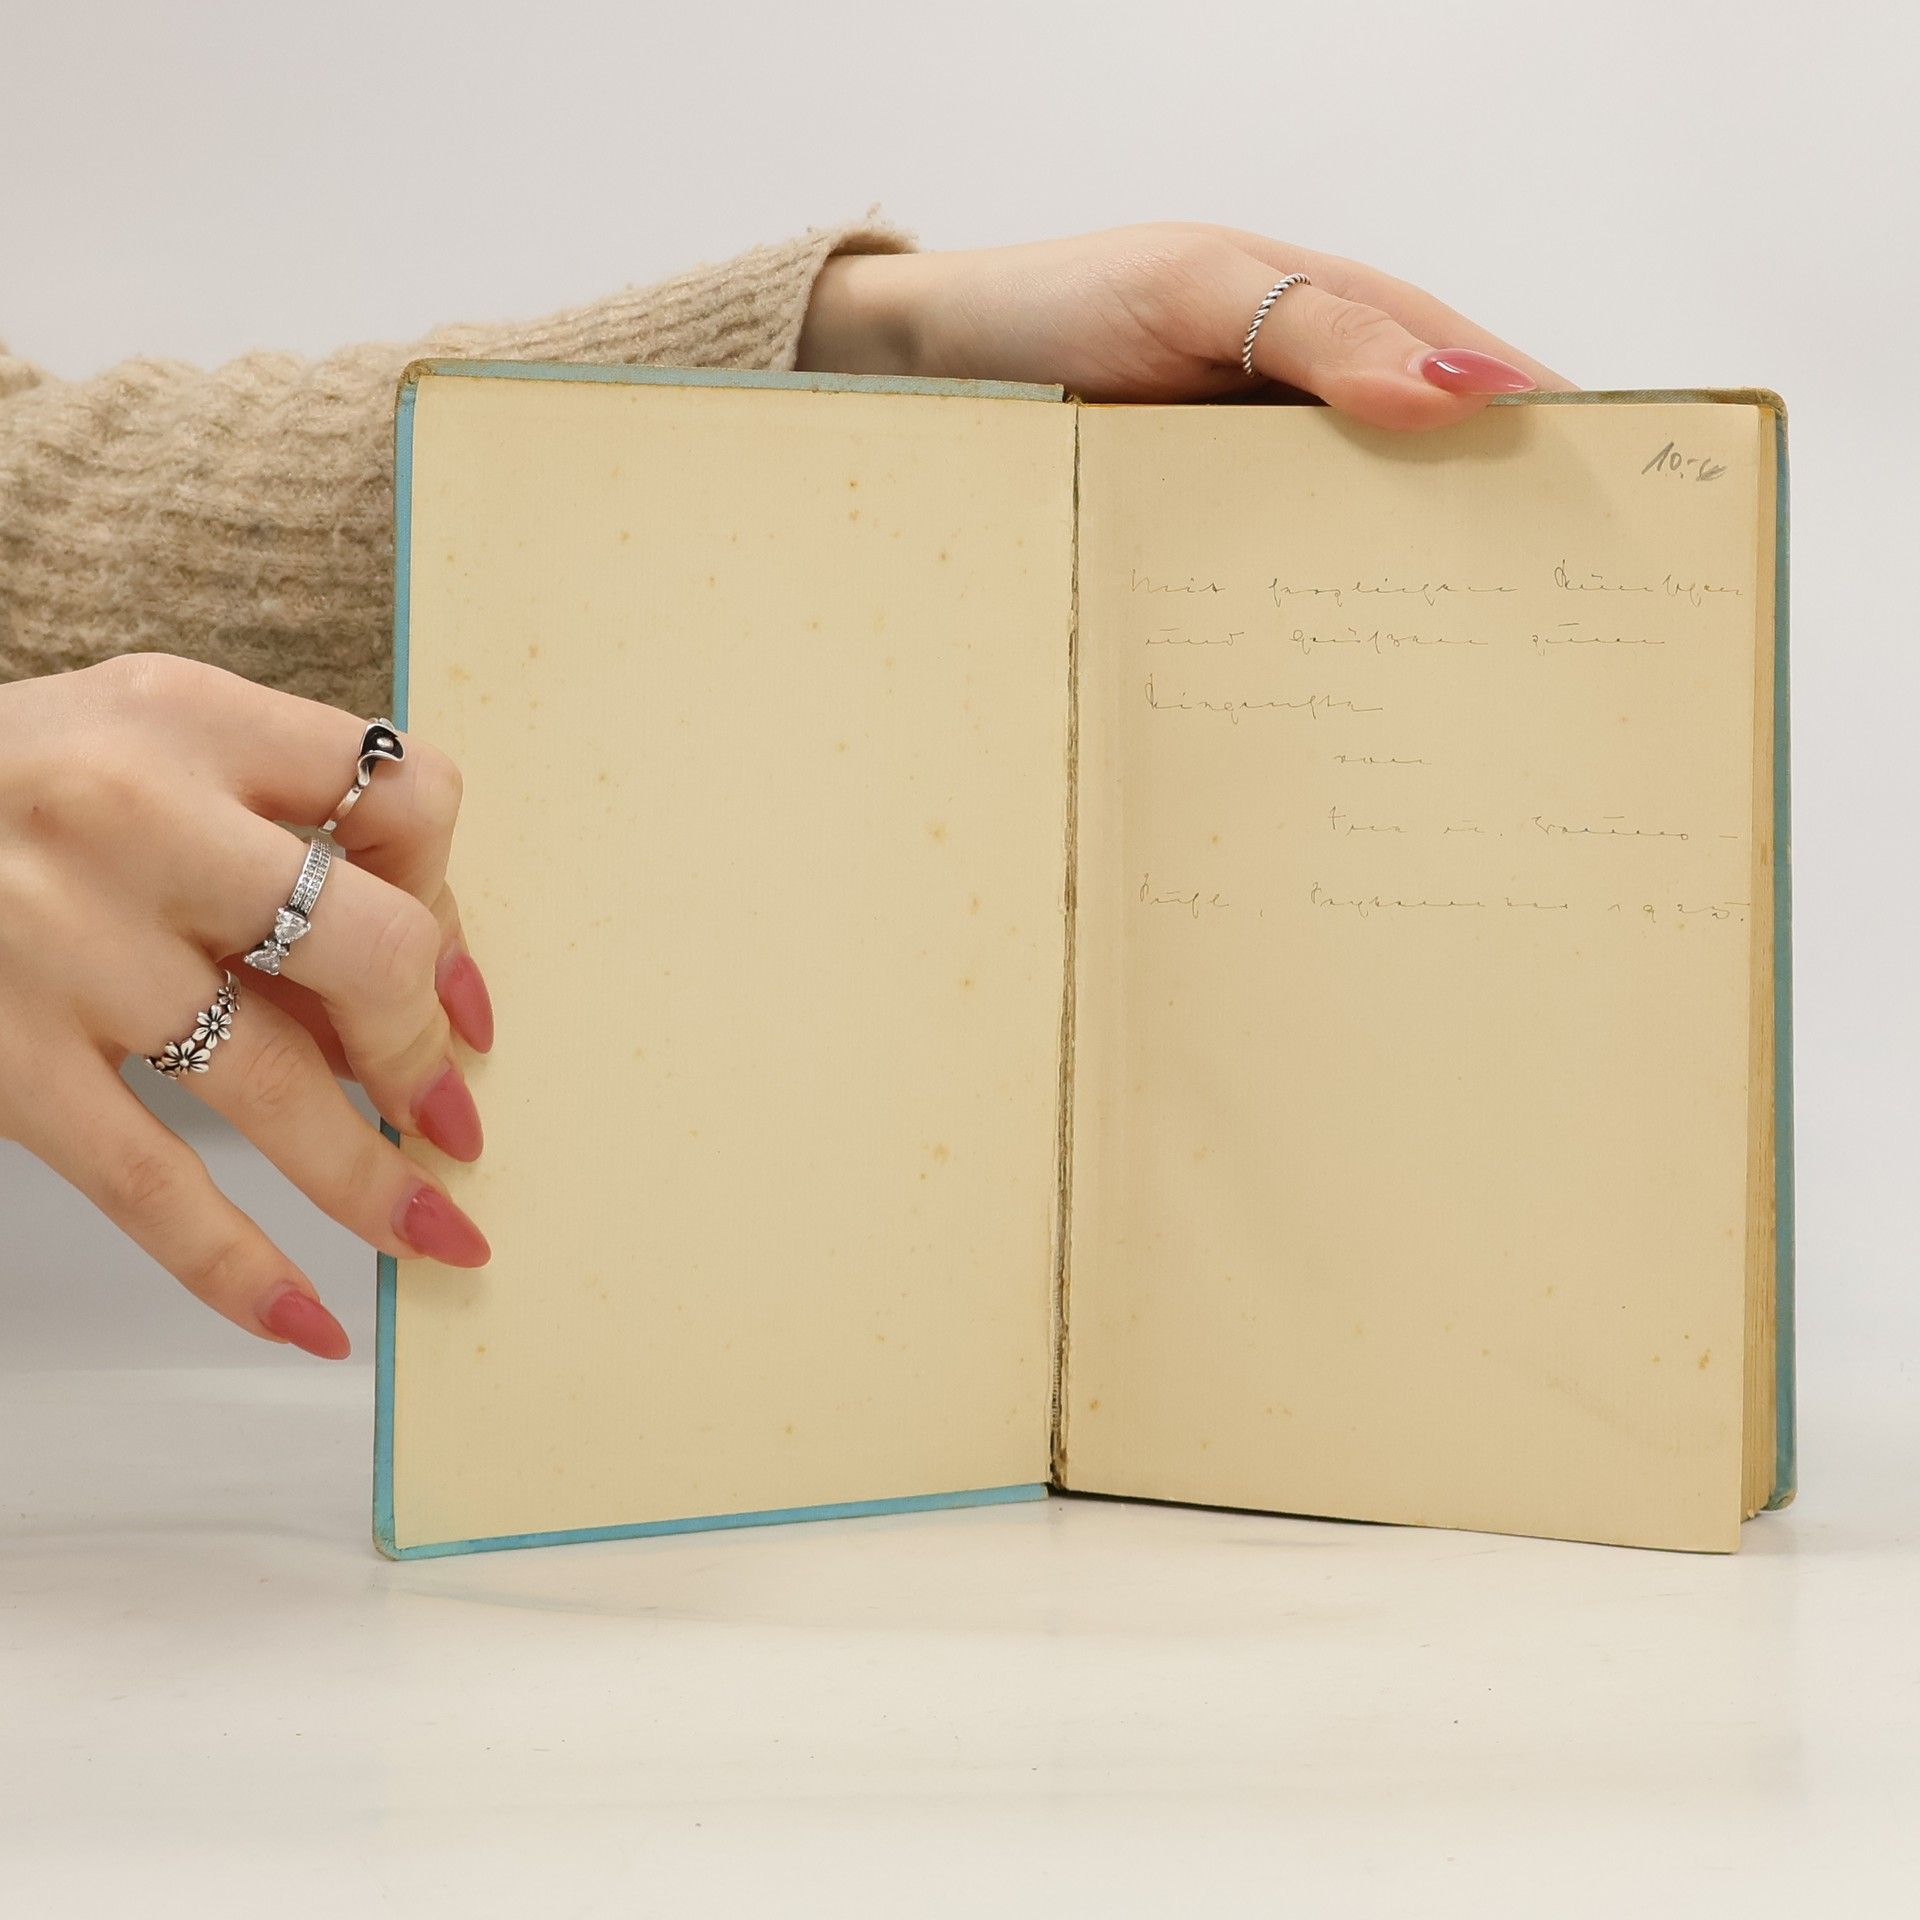 10.-€
Mit herzlichen Wünschen
und Grüßen zum
Wiegenfeste
von
u.
, September 1925.